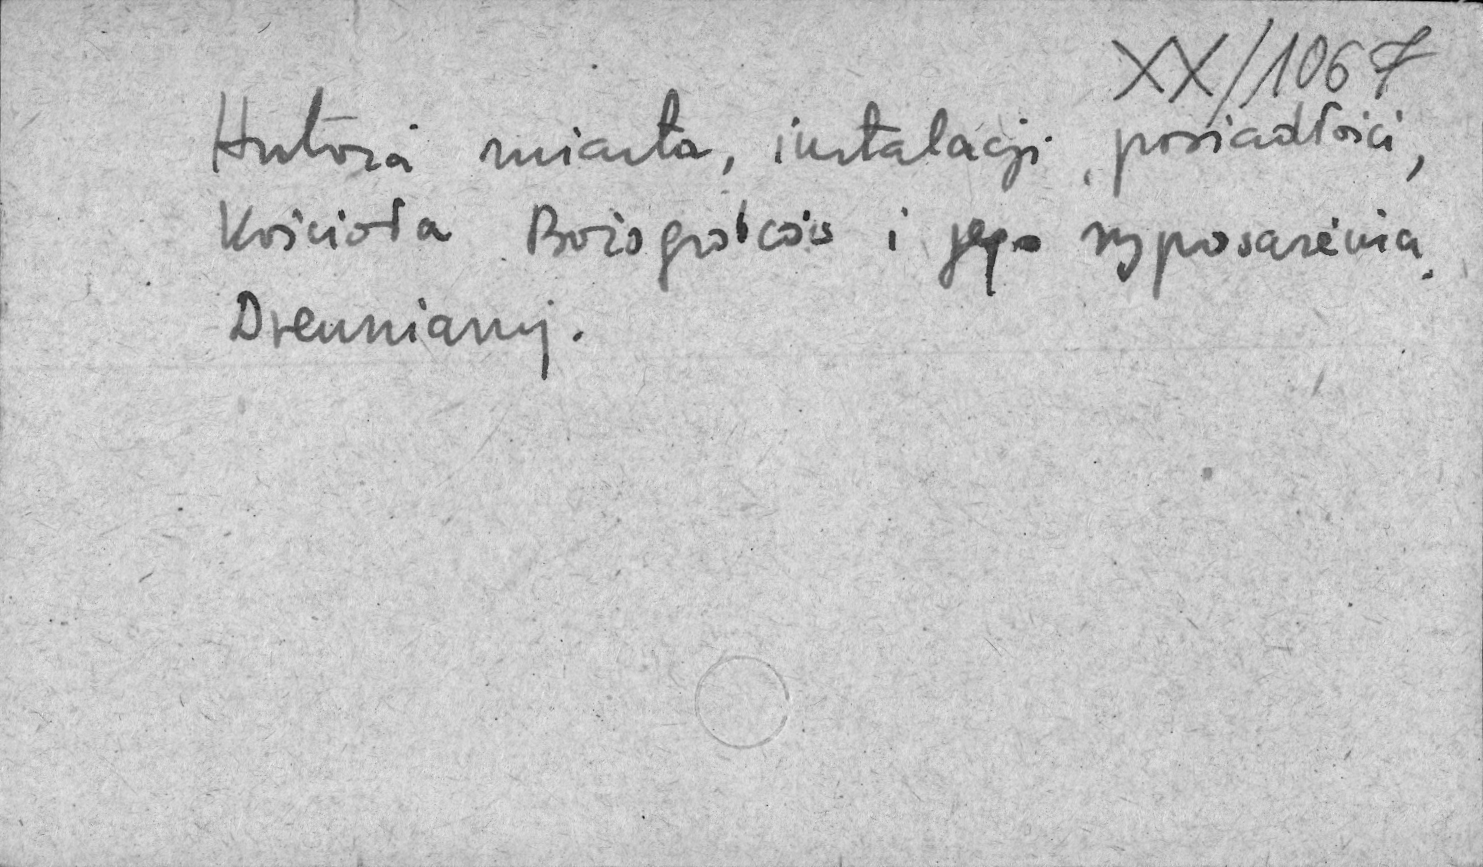 XX/1067
Historia miasta, instalacji, posiadłości,
Kościoła Bożogrobców i jego wyposażenia.
Drewniany.